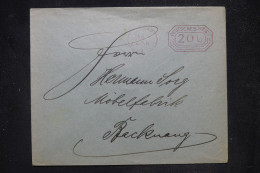 20
Herrn
Hermann Sorg
Möbelfabrik
Backnang